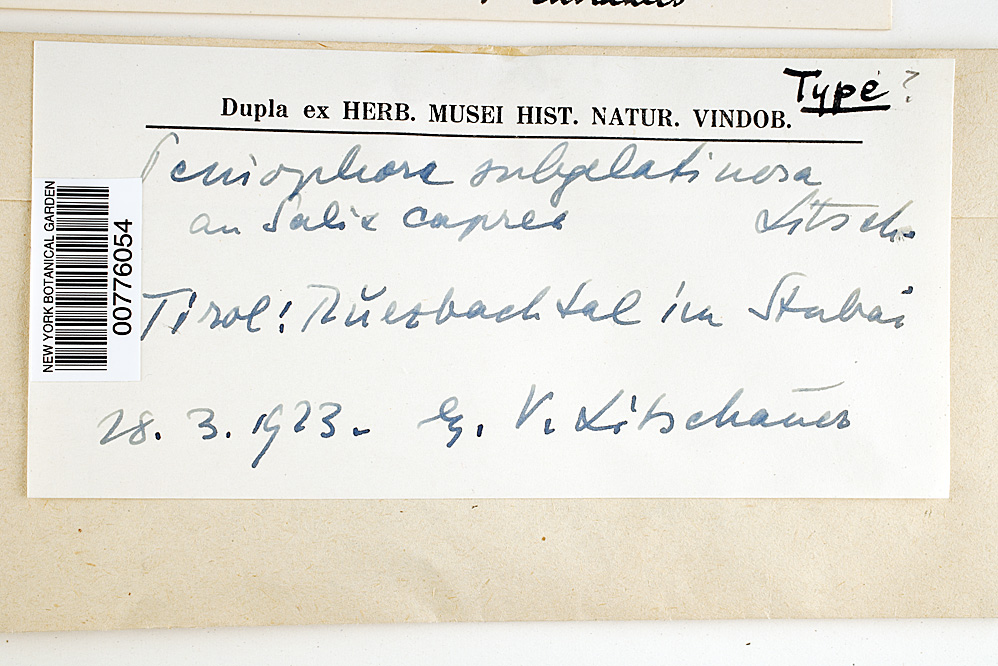 Type ?
Dupla ex HERB. MUSEI HIST. NATUR. VINDOB.
Peniophora subgelatinosa
an Salix caprea Litsch.
Tirol: im Stubai
28. 3. 1923. V. Litschauer
NEW YORK BOTANICAL GARDEN
00776054